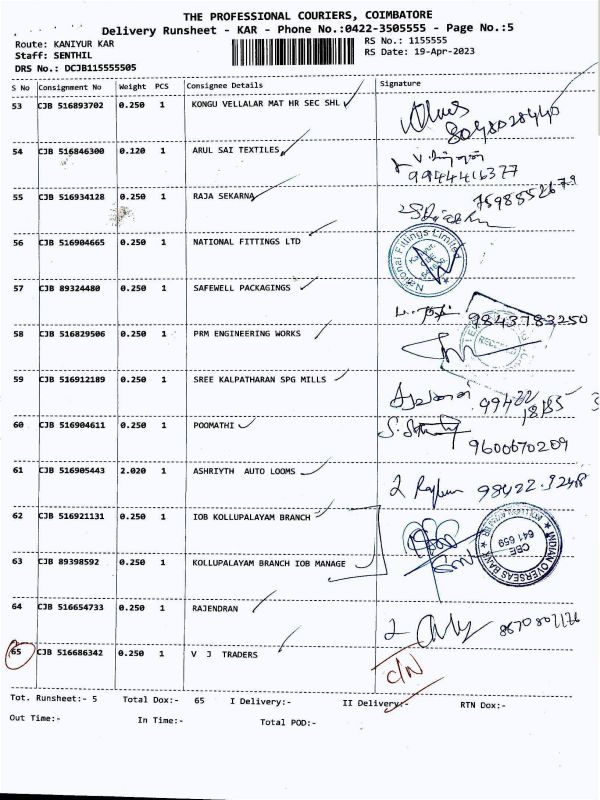 THE PROFESSIONAL COURIERS, COIMBATORE
Delivery Runsheet - KAR - Phone No.:0422-3505555 - Page No.:5
Route: KANIYUR KAR
RS No.: 1155555
Staff: SENTHIL
RS Date: 19-Apr-2023
DRS No.: DCJB115555505
S No Consignment No Weight PCS Consignee Details Signature
53 CJB 516893702 0.250 1 KONGU VELLALAR MAT HR SEC SHL
8098028440
54 CJB 516846300 0.120 1 ARUL SAI TEXTILES
9944416377
55 CJB 516934128 0.250 1 RAJA SEKARNA
56 CJB 516904665 0.250 1 NATIONAL FITTINGS LTD
National Fittings Limited
57 CJB 89324480 0.250 1 SAFEWELL PACKAGINGS
9843783250
58 CJB 516829506 0.250 1 PRM ENGINEERING WORKS
59 CJB 516912189 0.250 1 SREE KALPATHARAN SPG MILLS
99422
18185
60 CJB 516904611 0.250 1 POOMATHI
9600670209
61 CJB 516905443 2.020 1 ASHRIYTH AUTO LOOMS
62 CJB 516921131 0.250 1 IOB KOLLUPALAYAM BRANCH
INDIAN OVERSEAS BANK
CBE
641 659
63 CJB 89398592 0.250 1 KOLLUPALAYAM BRANCH IOB MANAGE
64 CJB 516654733 0.250 1 RAJENDRAN
65 CJB 516686342 0.250 1 V J TRADERS
C/N
Tot. Runsheet:- 5 Total Dox:- 65 I Delivery:- II Delivery:- RTN Dox:-
Out Time:- In Time:- Total POD:-